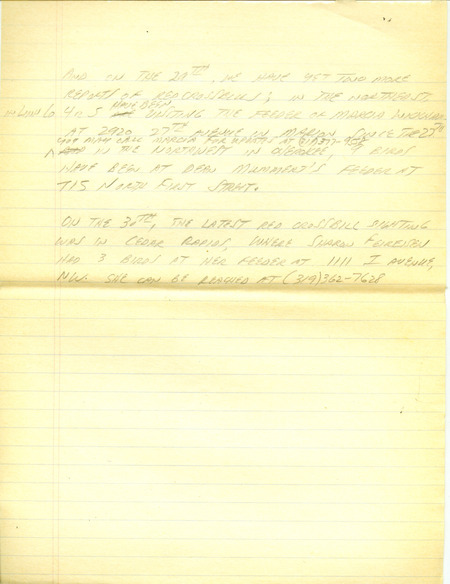 AND ON THE 29TH, WE HAVE YET TWO MORE
REPORTS OF RED CROSSBILLS; IN THE NORTHEAST
IN LINN CO 4 TO 5 HAVE BEEN VISITING THE FEEDER OF MARCIA
AT 2920 27TH AVENUE IN MARION SINCE THE 27TH
YOU MAY CALL MARCIA FOR DETAILS AT
IN THE NORTHWEST IN CHEROKEE, 9 BIRDS
HAVE BEEN AT DEAN MUMMERT'S FEEDER AT
715 NORTH FIRST STREET.
ON THE 30TH, THE LATEST RED CROSSBILL SIGHTING
WAS IN CEDAR RAPIDS, WHERE SHARON
HAD 3 BIRDS AT HER FEEDER AT 1111 I AVENUE,
NW. SHE CAN BE REACHED AT (319)362-7628